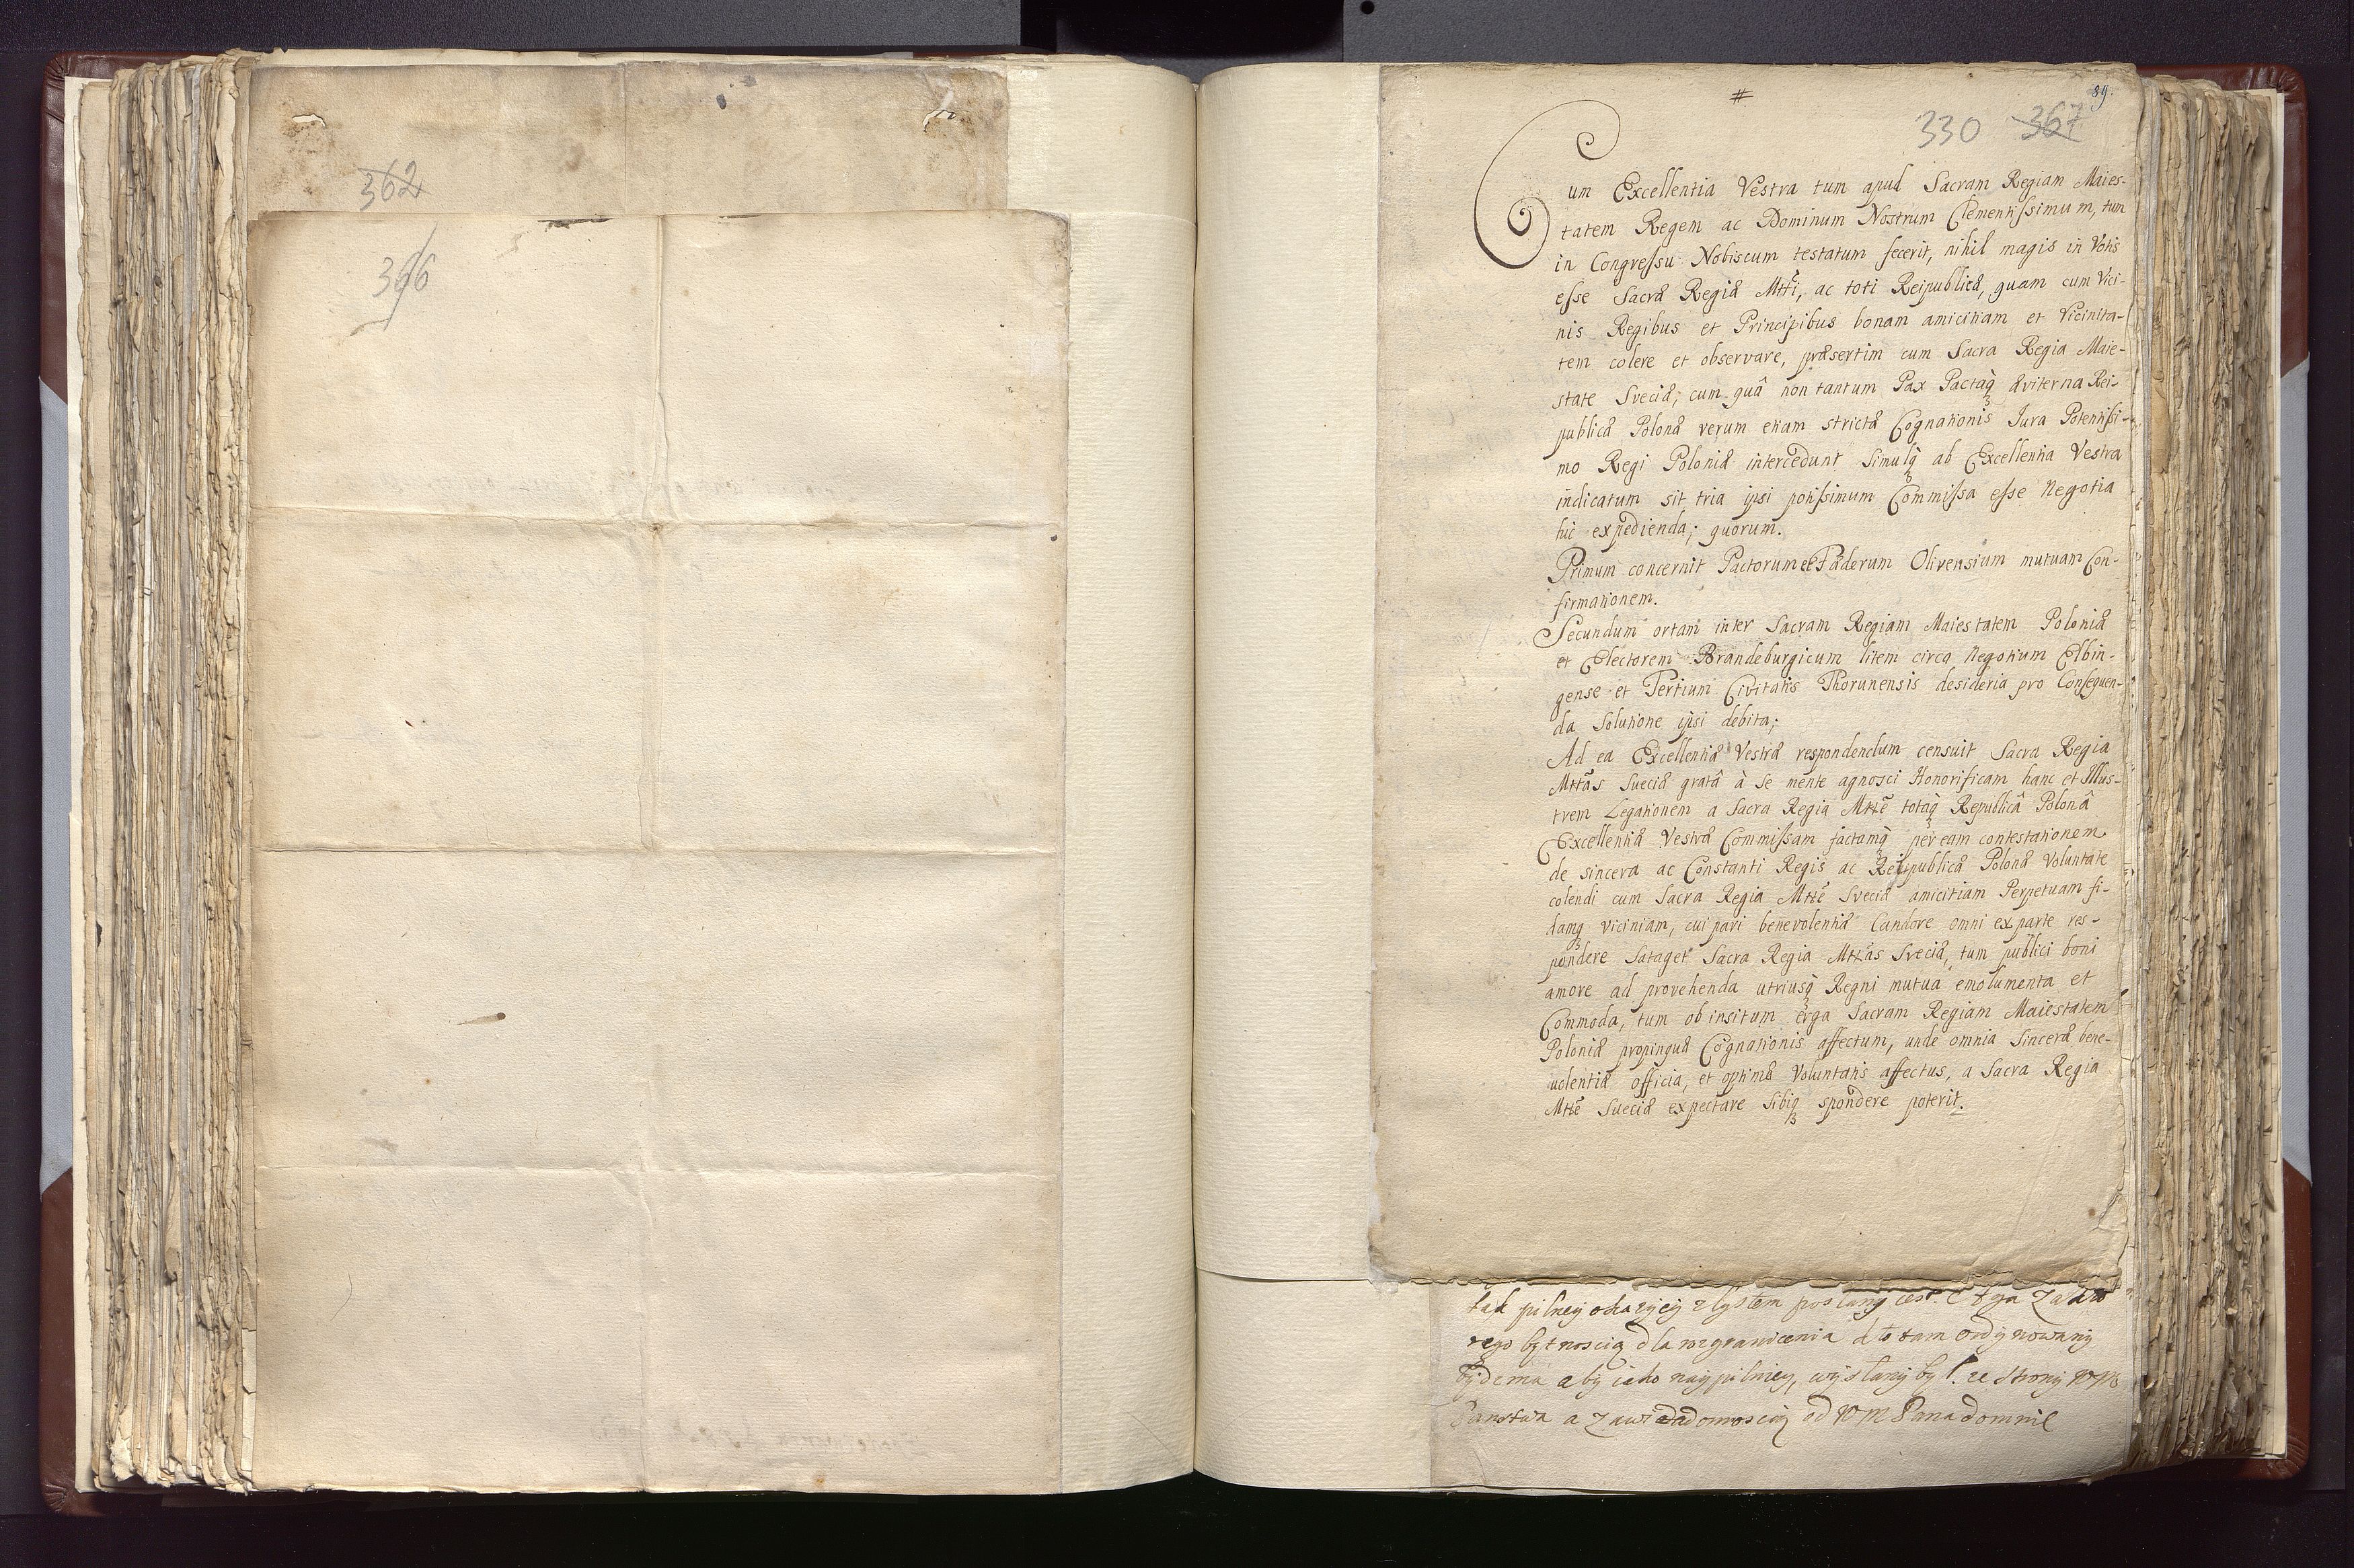 362
366
#
89.
330 367
Cum Excellentia Vestra tum apud Sacram Regiam Maies-
tatem Regem ac Dominum Nostrum Clementissimum, tum
in Congressu Nobiscum testatum fecerit, nihil magis in Votis
esse Sacræ Regiæ Mtti, ac toti Reipublicæ, quam cum Vici-
nis Regibus et Principibus bonam amicitiam et Vicinita-
tem colere et observare, præsertim cum Sacra Regia Maie-
state Sveciæ; cum quâ non tantum Pax Pactaq3 æviterna Rei-
publicæ Polonæ verum etiam strictæ Cognationis Jura Potentissi-
mo Regi Poloniæ intercedunt Simulq3 ab Excellentia Vestra
indicatum sit tria ipsi potissimum Commissa esse Negotia
hic expedienda; quorum.
Primum concernit Pactorum et Fæderum Olivensium mutuam Con-
firmationem.
Secundum ortam inter Sacram Regiam Maiestatem Poloniæ
et Electorem Brandeburgicum litem circa Negotium Elbin-
gense et Tertium Civitatis Thorunensis desideria pro Consequen-
da Solutione ipsi debita;
Ad ea Excellentiæ Vestræ respondendum censuit Sacra Regia
Mttas Sueciæ gratâ à Se mente agnosci Honorificam hanc et Illus-
trem Legationem a Sacra Regia Mtte totaq3 Republicâ Polonâ
Excellentiæ Vestræ Commissam factamq3 per eam contestationem
de sincera ac Constanti Regis ac Reipublicæ Polonæ Voluntate
colendi cum Sacra Regia Mtte Sveciæ amicitiam Perpetuam fi-
damq3 viciniam, cui pari benevolentiæ Candore omni ex parte res-
pondere Sataget Sacra Regia Mttas Sveciæ, tum publici boni
amore ad provehenda utriusq3 Regni mutua emolumenta et
Commoda, tum ob insitum erga Sacram Regiam Maiestatem
Poloniæ propinquæ Cognationis affectum, unde omnia Sinceræ bene-
uolentiæ officia, et optimæ Voluntatis affectus, a Sacra Regia
Mtte Sueciæ expectare Sibiq3 spondere poterit.
tak pilney okazyey z lystem poslany
rego bytnoscią dla rozgraniczenia tam ordynowany
aby iako naypilniey, wysłany był. ze strony WM
Panstwa a zawiadomoscią od WM Pana domnie